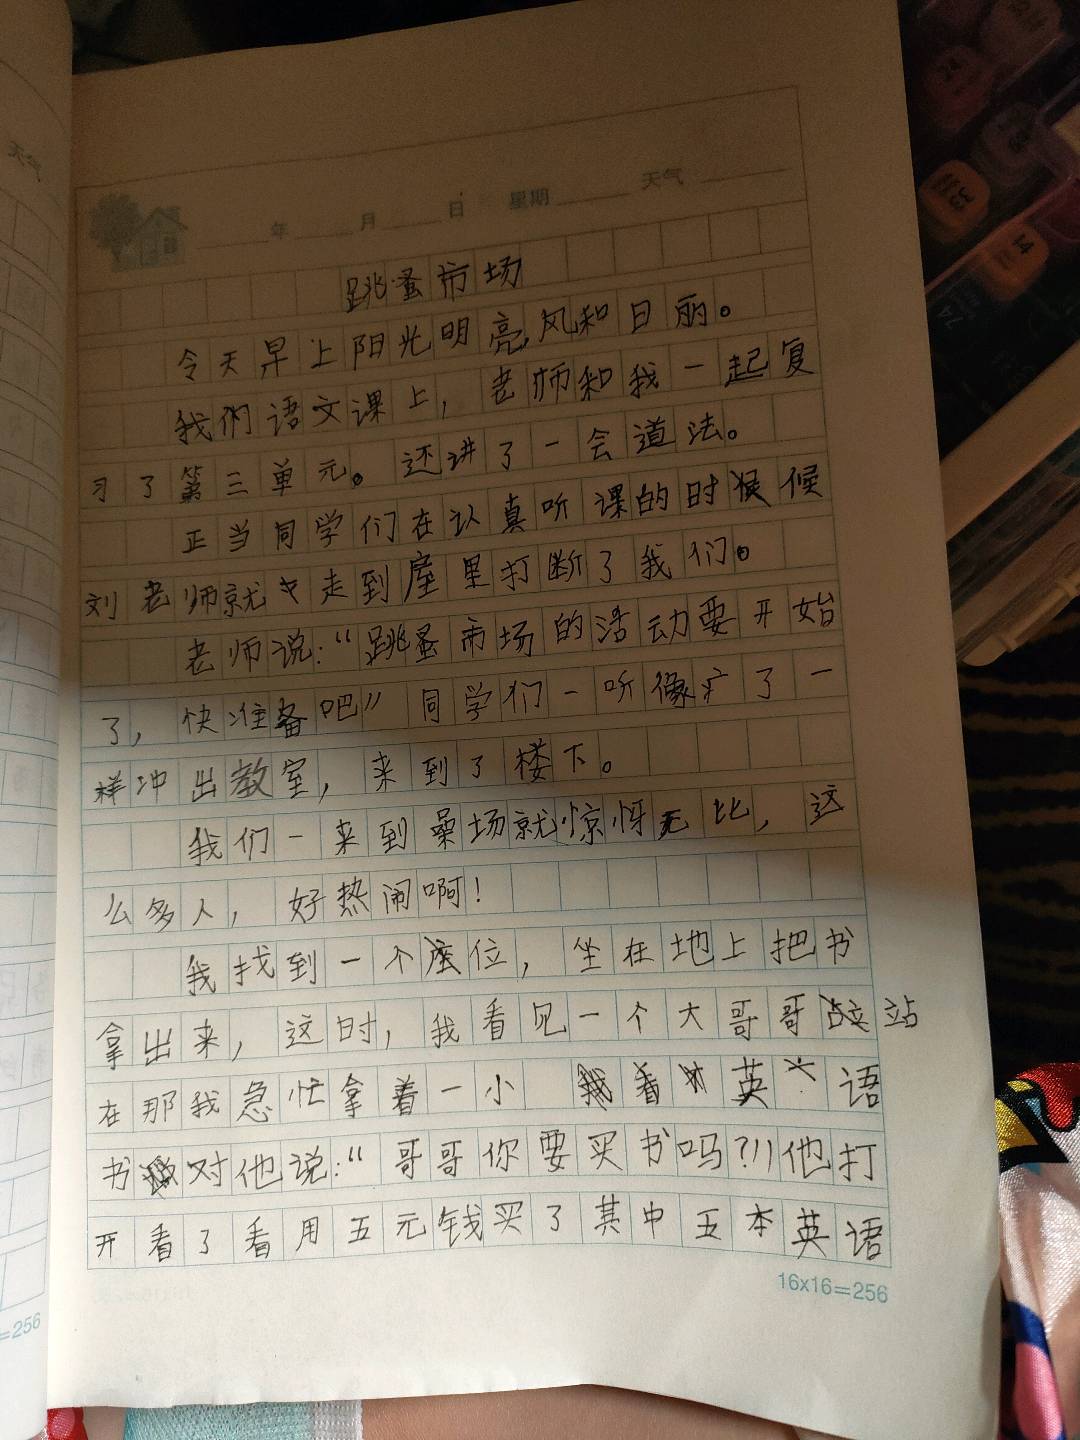 天气
年 月 日 星期 天气
跳蚤市场
今天早上阳光明亮,风和日丽。
我们语文课上,老师和我一起复
习了第三单元。还讲了一会道法。
正当同学们在认真听课的时候
刘老师就走到屋里打断了我们。
老师说:“跳蚤市场的活动要开始
了,快准备吧”同学们一听像疒了一
样冲出教室,来到了楼下。
我们一来到桑场就惊怀无比,这
么多人,好热闹啊!
我找到一个座位,坐在地上把书
拿出来,这时,我看见一个大哥哥站
在那我急忙拿着一小看英语
书对他说:“哥哥你要买书吗?”他打
开看了看用五元钱买了其中五本英语
16x16=256
=256
14